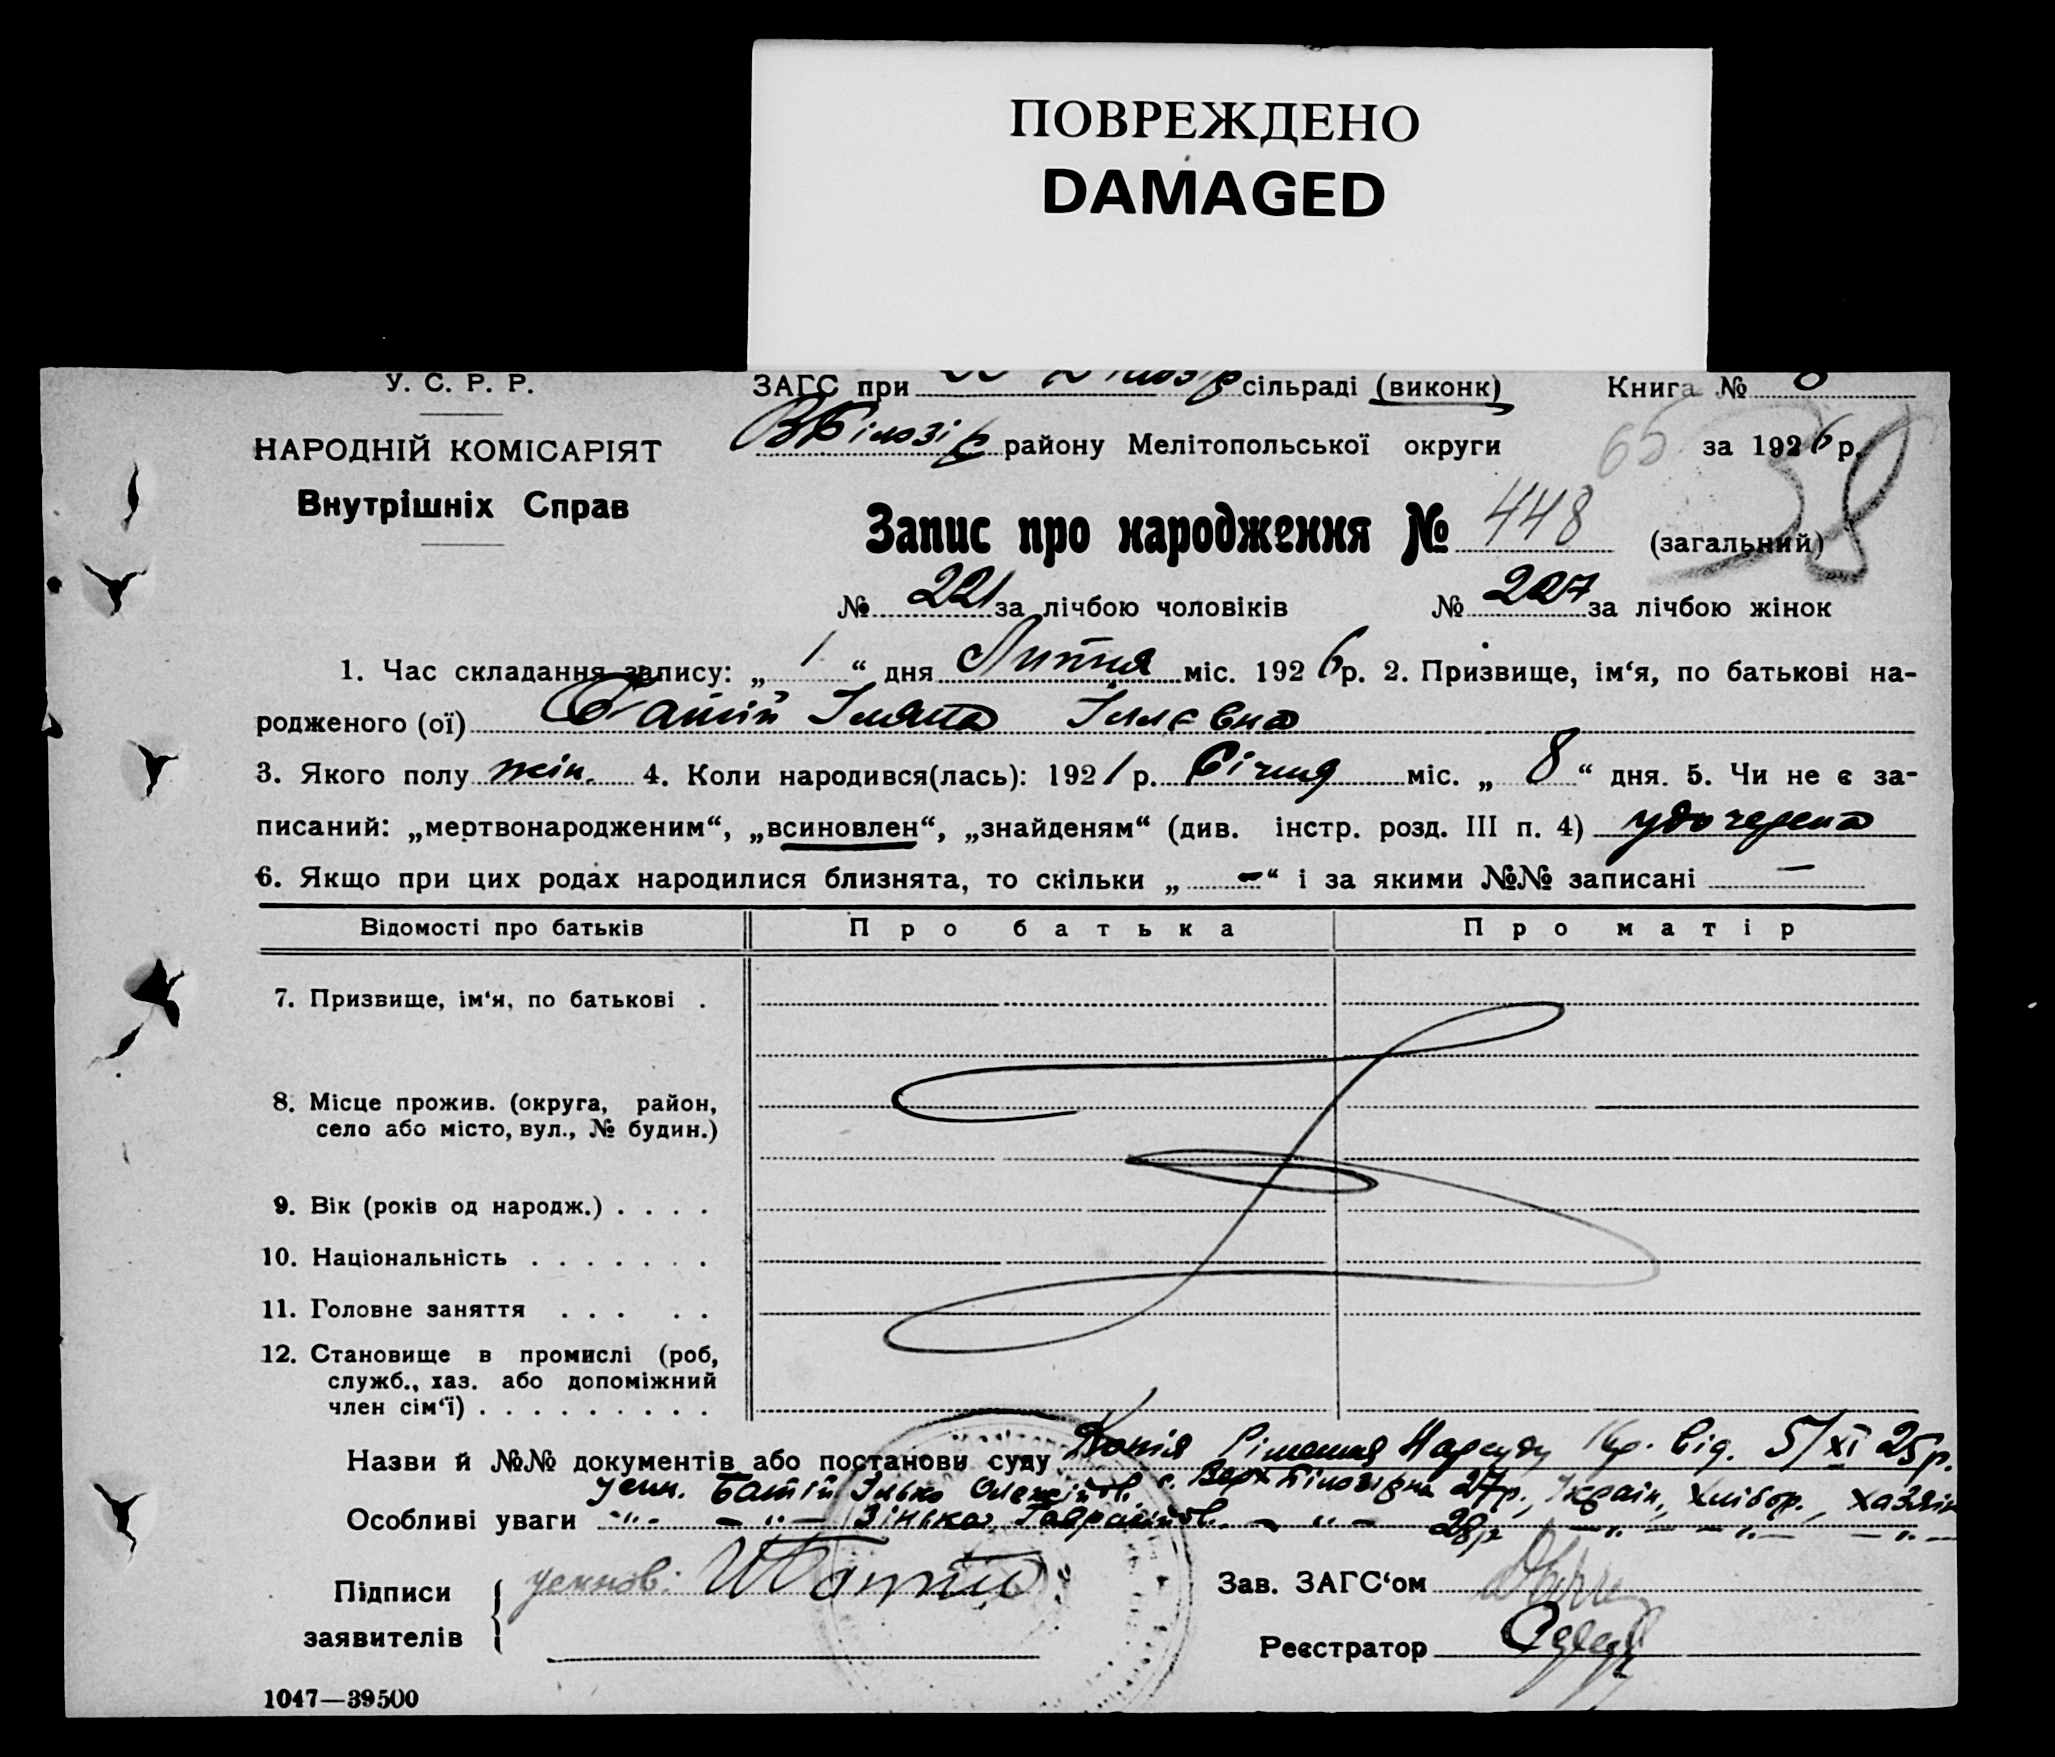 ПОВРЕЖДЕНО
DAMAGED
У. С. Р. Р.
ЗАГС при сільраді (виконк)
Книга № 8
НАРОДНІЙ КОМІСАРІЯТ
ВБілозір району Мелітопольської округи
65
за 1926 р.
38
Внутрішніх Справ
Запис про народження № 448 (загальний)
№ 221 за лічбою чоловіків № 227 за лічбою жінок
1. Час складання запису: „ 1 “ дня Липня міс. 1926 р. 2. Призвище, ім‘я, по батькові на-
родженого (ої) Батій Іллєвна
3. Якого полу жін. 4. Коли народився(лась): 1921 р. Січня міс. „ 8 “ дня. 5. Чи не є за-
писаний: „мертвонародженим“, „всиновлен“, „знайденям“ (див. інстр. розд. III п. 4) удочерена
6. Якщо при цих родах народилися близнята, то скільки „ – “ і за якими №№ записані –
Відомості про батьків Про батька Про матір
7. Призвище, ім‘я, по батькові .
8. Місце прожив. (округа, район,
село або місто, вул., № будин.)
9. Вік (років од народж.) . . . .
10. Національність . . . . . . .
11. Головне заняття . . . . .
12. Становище в промислі (роб,
служб., хаз. або допоміжний
член сім‘ї) . . . . . . . . .
Назви й №№ документів або постанови суду Копія Рішення Нарсуду від. 5/XI 25р.
Усин. Батій Ілько Олексійов. с. Верх Білозірка 27р., Україн., хлібор., хазяін
Особливі уваги –„– –„– Зінька –„– 28р –„– –„– –„–
Підписи
заявителів
усинов: Зав. ЗАГС‘ом
Реєстратор
1047—39500